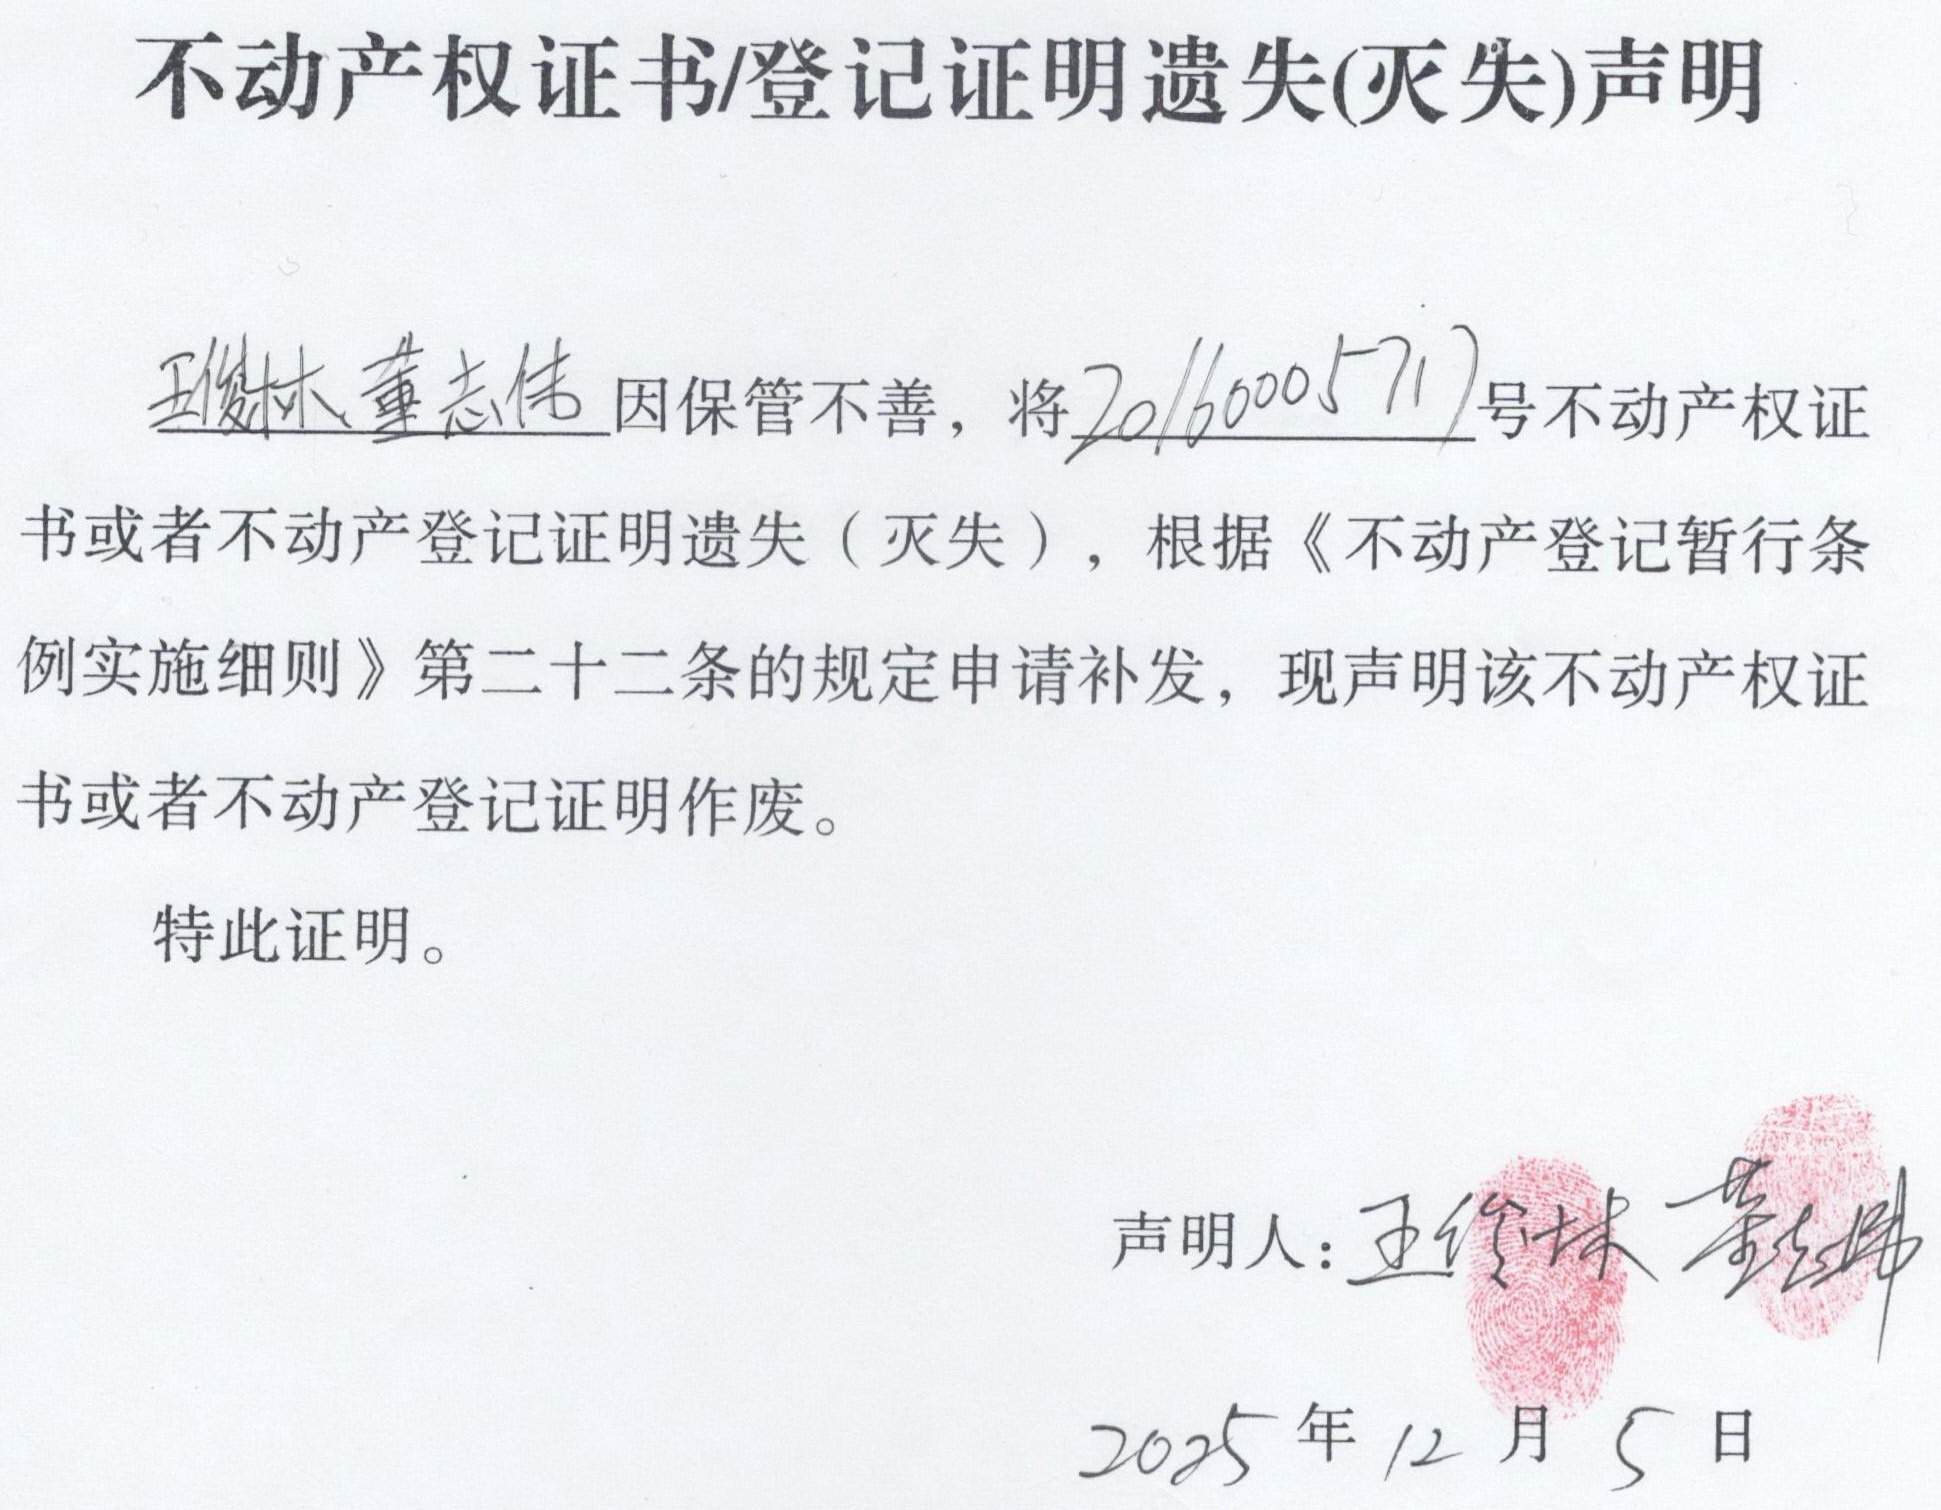 不动产权证书/登记证明遗失(灭失)声明
王俊林 董志伟因保管不善，将20160005717号不动产权证
书或者不动产登记证明遗失（灭失），根据《不动产登记暂行条
例实施细则》第二十二条的规定申请补发，现声明该不动产权证
书或者不动产登记证明作废。
特此证明。
声明人：王俊林 董志伟
2025年12月5日